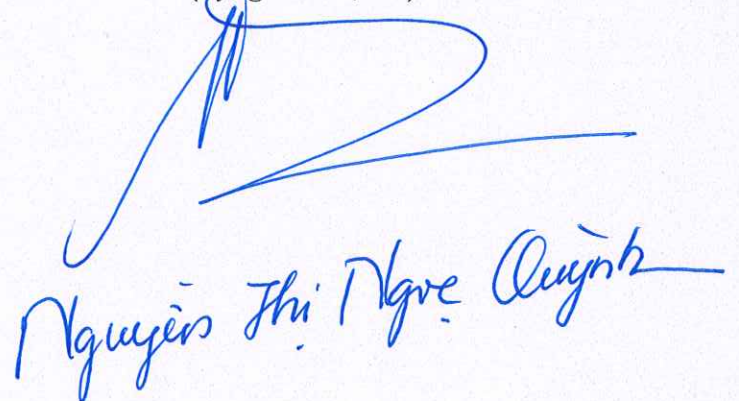 Nguyễn Thị Ngọc Quỳnh